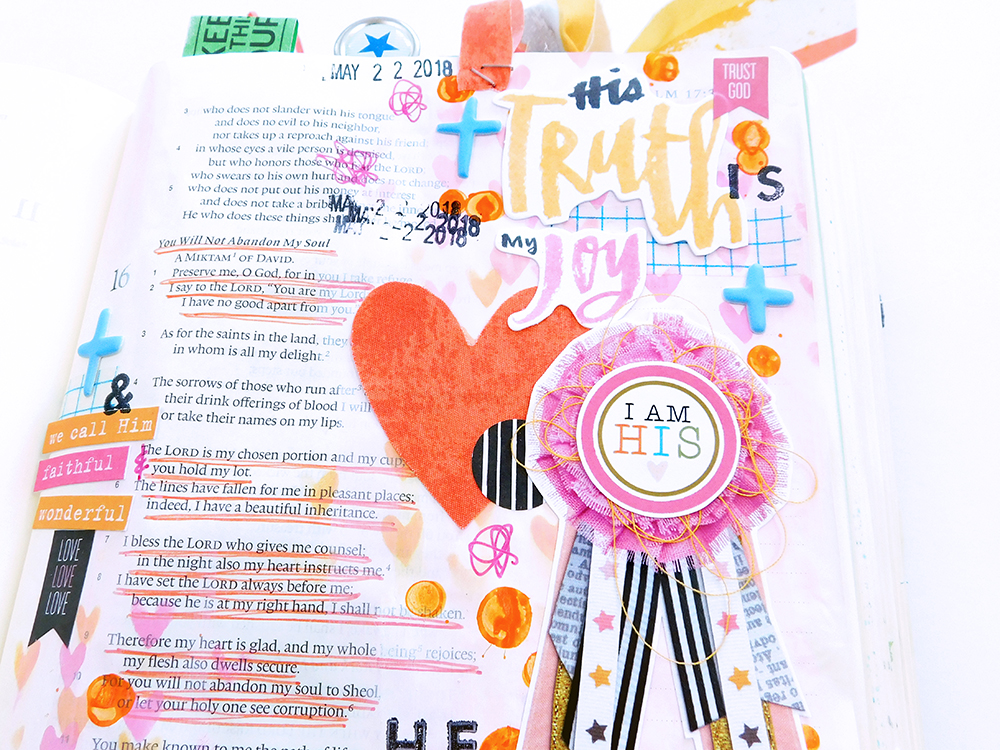 KEE
THI
OUF
MAY 2 2 2018
3 who does not slander with his tongue
and does no evil to his neighbor,
nor takes up a reproach against his friend;
4 in whose eyes a vile person is despised,
but who honors those who the LORD;
who swears to his own hurt and does not change,
5 who does not put out his money at interest
and does not take a bribe
He who does these things
MAY 2 2 2018
MAY 2 2 2018
MAY 2 2 2018
You Will Not Abandon My Soul
A MIKTAM OF DAVID.
16
1 Preserve me, O God, for in you I take refuge.
2 I say to the LORD, "You are my Lord;
I have no good apart from you."
3 As for the saints in the land, they
in whom is all my delight.2
4 The sorrows of those who run after3
their drink offerings of blood I will
or take their names on my lips.
The LORD is my chosen portion and my cup;
you hold my lot.
6 The lines have fallen for me in pleasant places;
indeed, I have a beautiful inheritance.
7 I bless the LORD who gives me counsel;
in the night also my heart instructs me.4
8 I have set the LORD always before me;
because he is at my right hand, I shall not be shaken.
9 Therefore my heart is glad, and my whole being5 rejoices;
my flesh also dwells secure.
10 For you will not abandon my soul to Sheol,
or let your holy one see corruption.6
You make known to me the path of life
&
we call Him
faithful &
wonderful
LOVE
LOVE
LOVE
His
TRUST
GOD
Truth
IS
My
Joy
I AM
HIS
HE